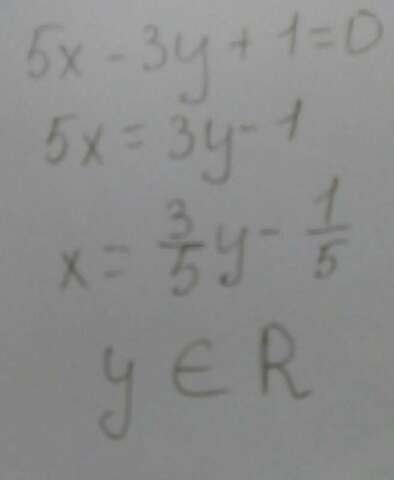 5x - 3y + 1 = 0
5x = 3y - 1
x = 3/5 y - 1/5
y ∈ R